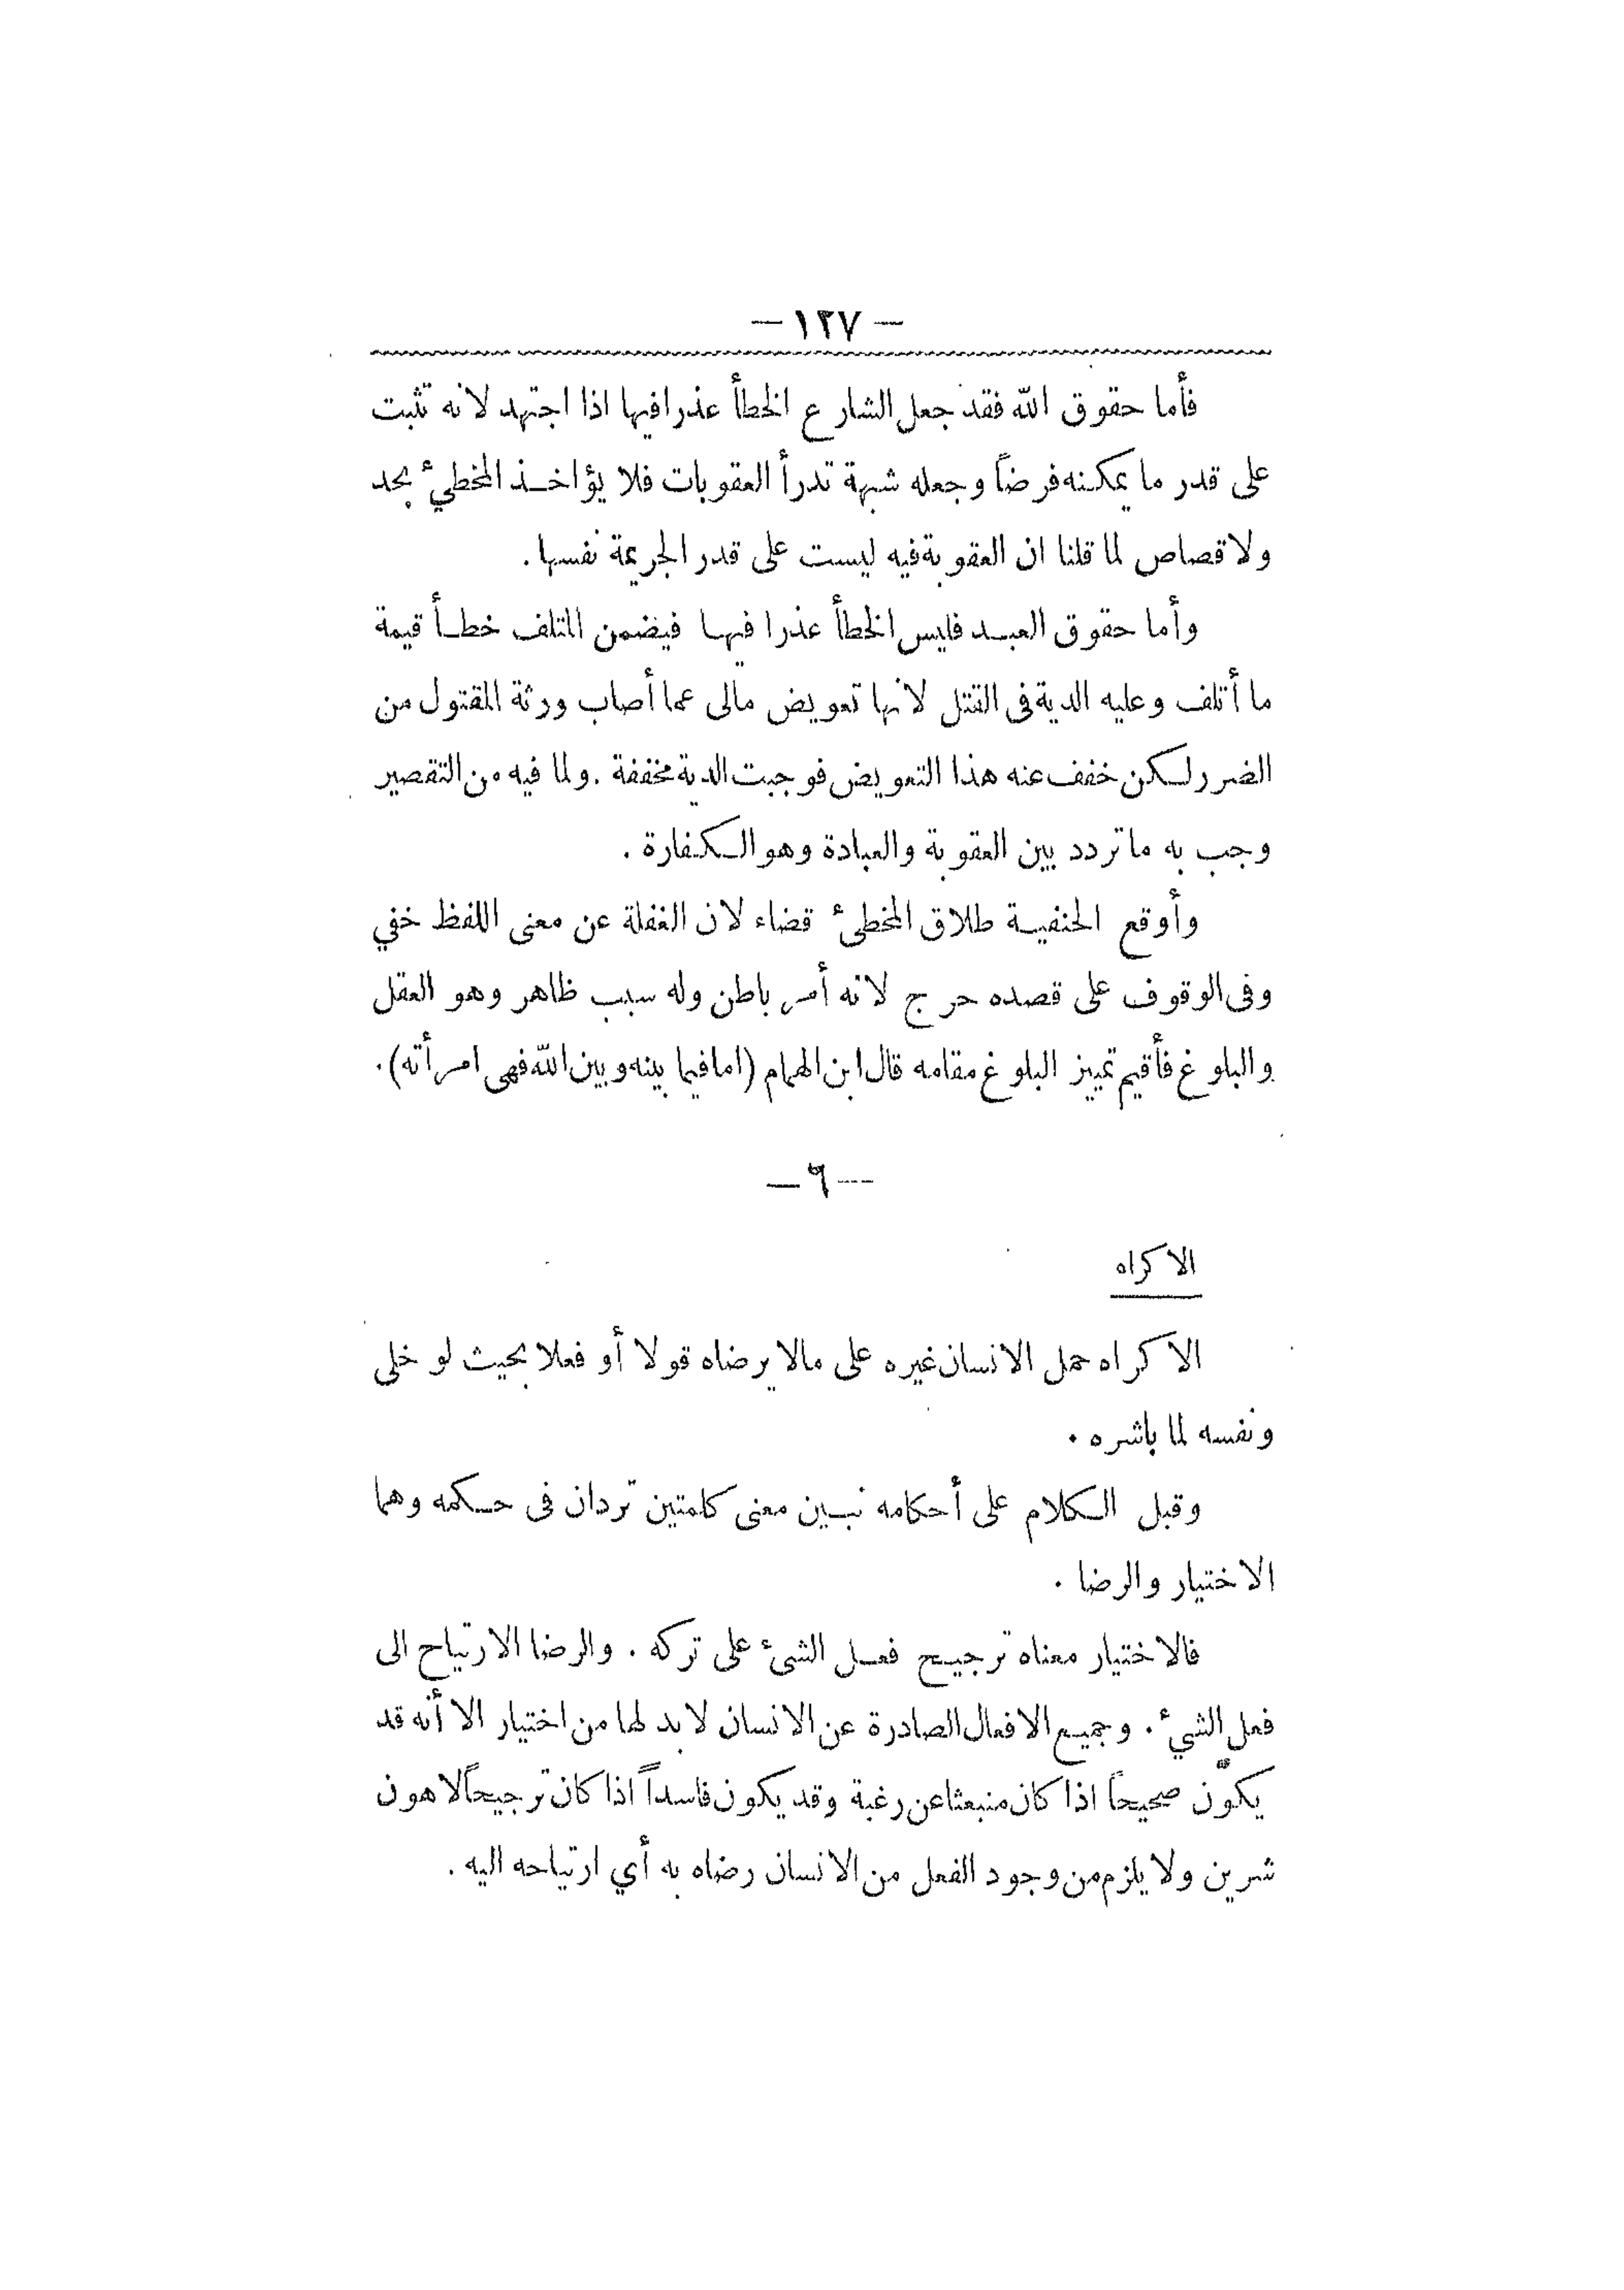 — ١٢٧ —
فأما حقوق الله فقد جعل الشارع الخطأ عذرا فيها اذا اجتهد لانه تثبت
على قدر ما يمكنه فرضاً وجعله شبهة تدرأ العقوبات فلا يؤاخذ المخطيء بحد
ولا قصاص لما قلنا ان العقوبة فيه ليست على قدر الجريمة نفسها .
وأما حقوق العبد فليس الخطأ عذرا فيها فيضمن المتلف خطأ قيمة
ما أتلف وعليه الدية فى القتل لانها تعويض مالى عما أصاب ورثة المقتول من
الضرر لكن خفف عنه هذا التعويض فوجبت الدية مخففة . ولما فيه من التقصير
وجب به ما تردد بين العقوبة والعبادة وهو الكفارة .
وأوقع الحنفية طلاق المخطىء قضاء لان الغفلة عن معنى اللفظ خفي
وفى الوقوف على قصده حرج لانه أمر باطن وله سبب ظاهر وهو العقل
والبلوغ فأقيم تمييز البلوغ مقامه قال ابن الهمام (اما فيما بينه وبين الله فهى امرأته) .
— ٦ —
الاكراه
الاكراه حمل الانسان غيره على مالا يرضاه قولا أو فعلا بحيث لو خلى
ونفسه لما باشره .
وقبل الكلام على أحكامه نبين معنى كلمتين تردان فى حكمه وهما
الاختيار والرضا .
فالاختيار معناه ترجيح فعل الشىء على تركه . والرضا الارتياح الى
فعل الشيء . وجميع الافعال الصادرة عن الانسان لا بد لها من اختيار الا أنه قد
يكوّن صحيحاً اذا كان منبعثا عن رغبة وقد يكون فاسداً اذا كان ترجيحاً لاهون
شرين ولا يلزم من وجود الفعل من الانسان رضاه به أي ارتياحه اليه .